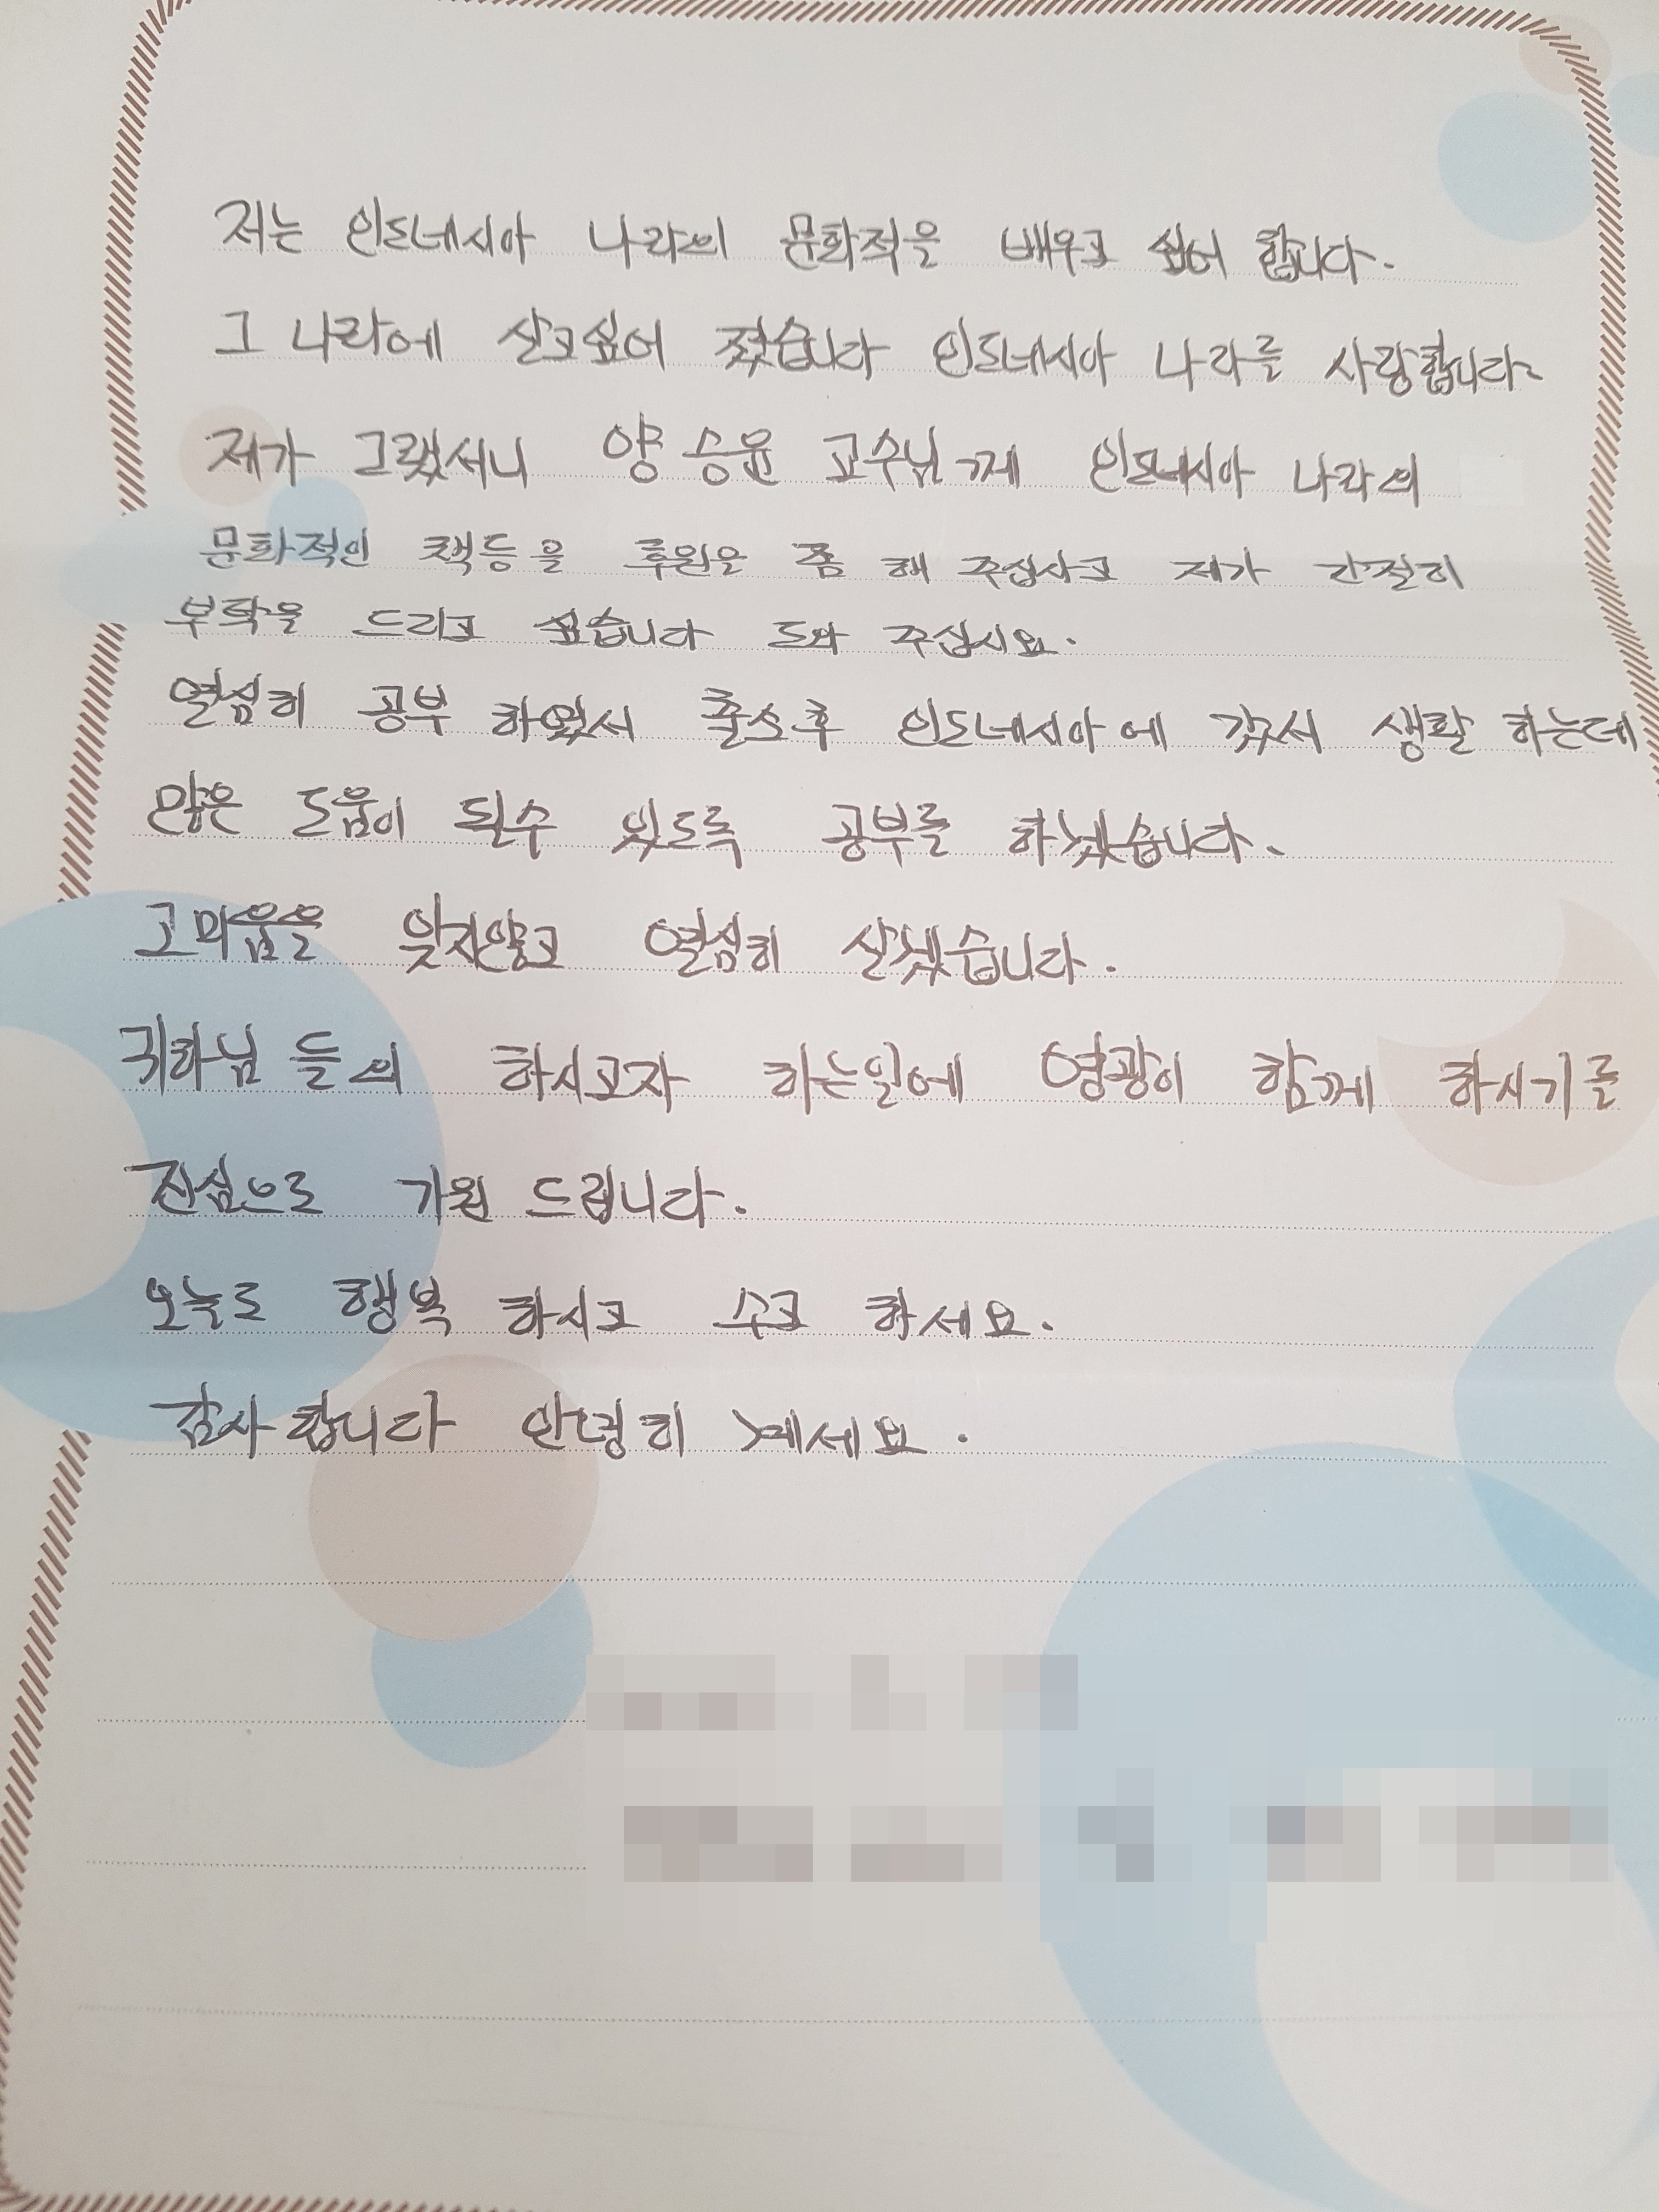 저는 인도네시아 나라의 문화적을 배우고 싶어 합니다.
그 나라에 살고싶어 졌습니다 인도네시아 나라를 사랑합니다.
제가 그랬서니 양승윤 교수님께 인도네시아 나라의
문화적인 책등을 후원을 좀 해 주십사고 제가 간절히
부탁을 드리고 싶습니다 도와 주십시요.
열심히 공부 하였서 출소후 인도네시아에 갔서 생활 하는데
많은 도움이 될수 있도록 공부를 하겠습니다.
고마음을 잊지않고 열심히 살겠습니다.
귀하님들의 하시고자 하는일에 영광이 함께 하시기를
진심으로 기원 드립니다.
오늘도 행복 하시고 수고 하세요.
감사합니다 안녕히 계세요.